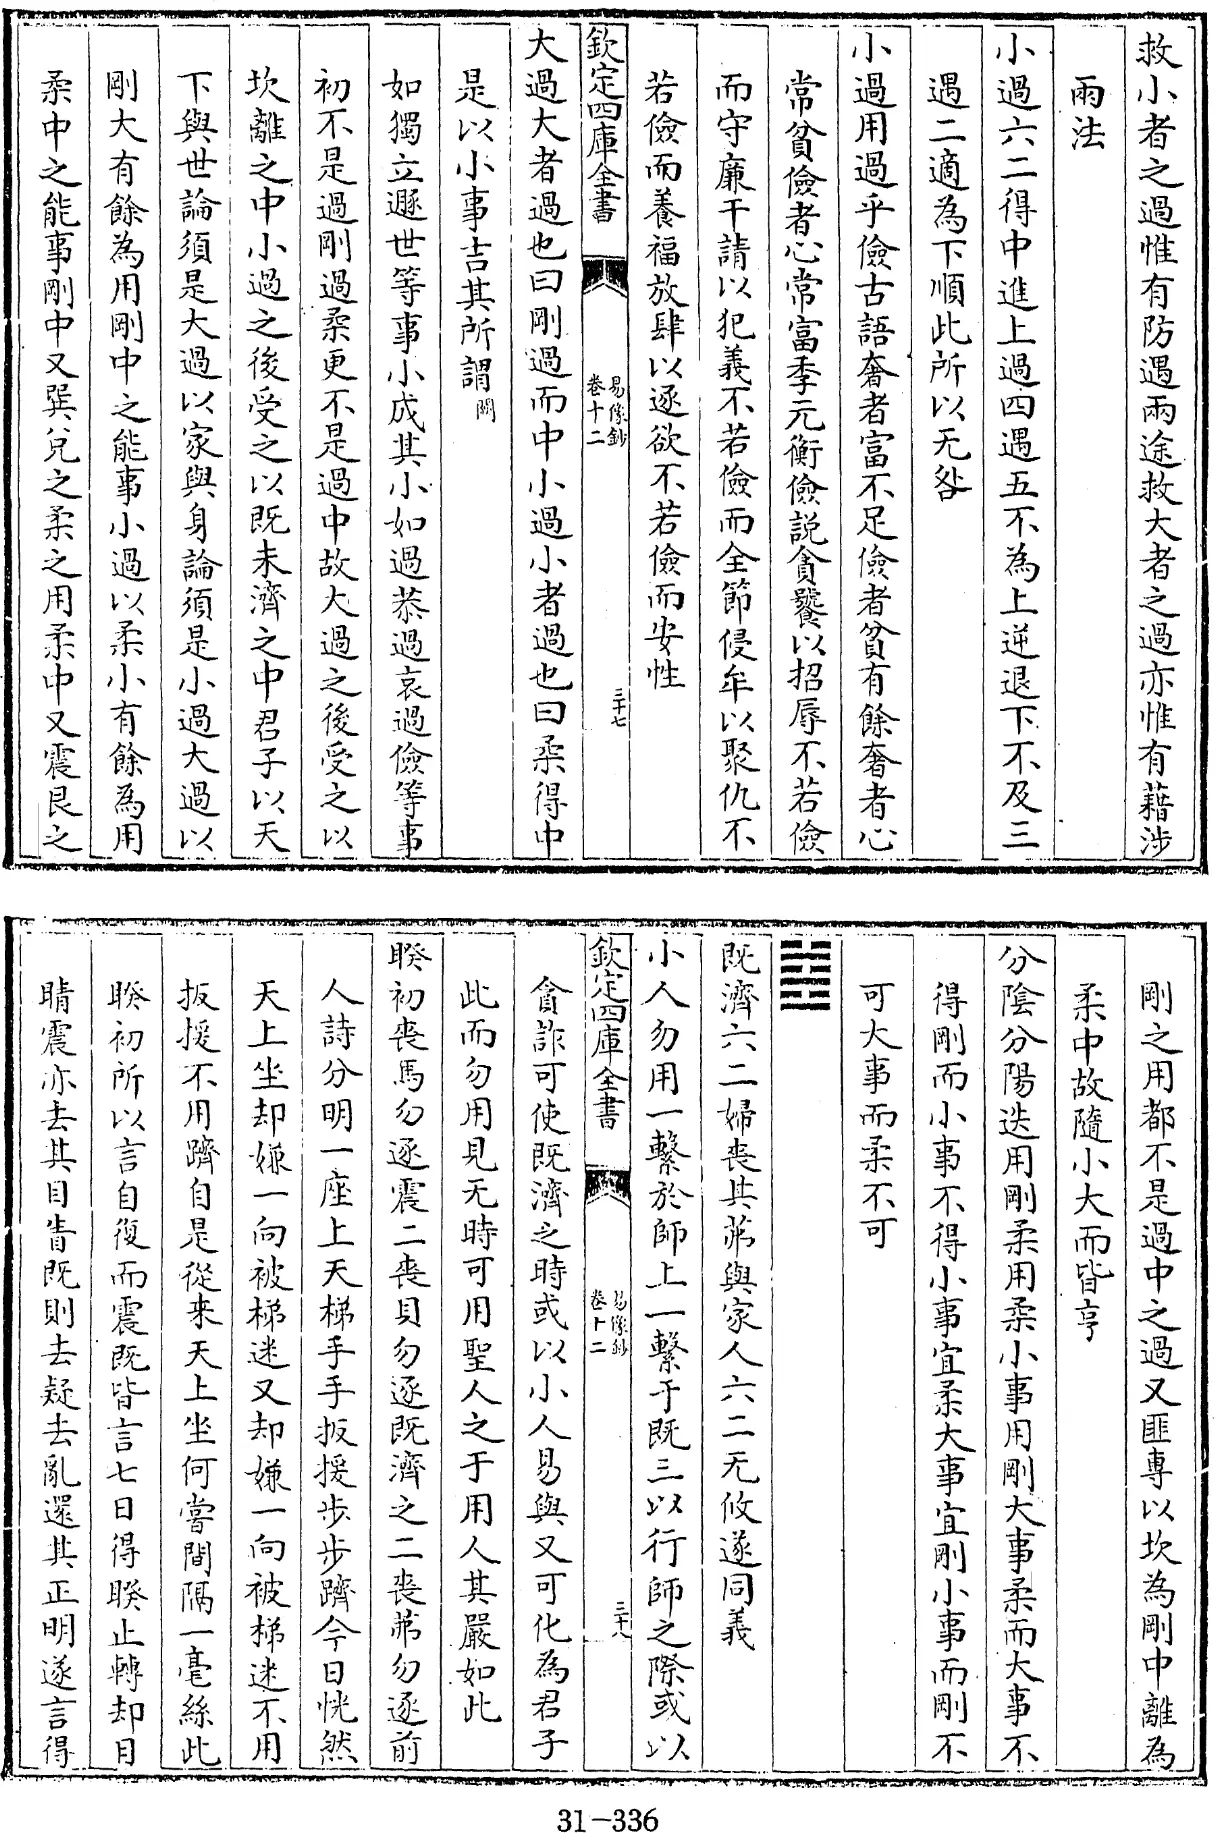 救小者之過惟有防遇兩途救大者之過亦惟有藉涉
兩法
小過六二得中進上過四遇五不為上逆退下不及三
遇二適為下順此所以无咎
小過用過乎儉古語奢者富不足儉者貧有餘奢者心
常貧儉者心常富季元衡儉説貪饕以招辱不若儉
而守廉干請以犯義不若儉而全節侵牟以聚仇不
若儉而養福放肆以逐欲不若儉而安性
欽定四庫全書
易像鈔
卷十二
三十七
大過大者過也曰剛過而中小過小者過也曰柔得中
是以小事吉其所謂闕
如獨立遯世等事小成其小如過恭過哀過儉等事
初不是過剛過柔更不是過中故大過之後受之以
坎離之中小過之後受之以既未濟之中君子以天
下與世論須是大過以家與身論須是小過大過以
剛大有餘為用剛中之能事小過以柔小有餘為用
柔中之能事剛中又巽兌之柔之用柔中又震艮之
剛之用都不是過中之過又匪專以坎為剛中離為
柔中故隨小大而皆亨
分陰分陽迭用剛柔用柔小事用剛大事柔而大事不
得剛而小事不得小事宜柔大事宜剛小事而剛不
可大事而柔不可
䷾
既濟六二婦喪其茀與家人六二无攸遂同義
小人勿用一繫於師上一繫于既三以行師之際或以
欽定四庫全書
易像鈔
卷十二
三十八
貪詐可使既濟之時或以小人易與又可化為君子
此而勿用見无時可用聖人之于用人其嚴如此
睽初喪馬勿逐震二喪貝勿逐既濟之二喪茀勿逐前
人詩分明一座上天梯手手扳援步步躋今日恍然
天上坐却嫌一向被梯迷又却嫌一向被梯迷不用
扳援不用躋自是從来天上坐何嘗間隔一毫絲此
睽初所以言自復而震既皆言七日得睽止轉却目
睛震亦去其目眚既則去疑去亂還其正明遂言得
31-336